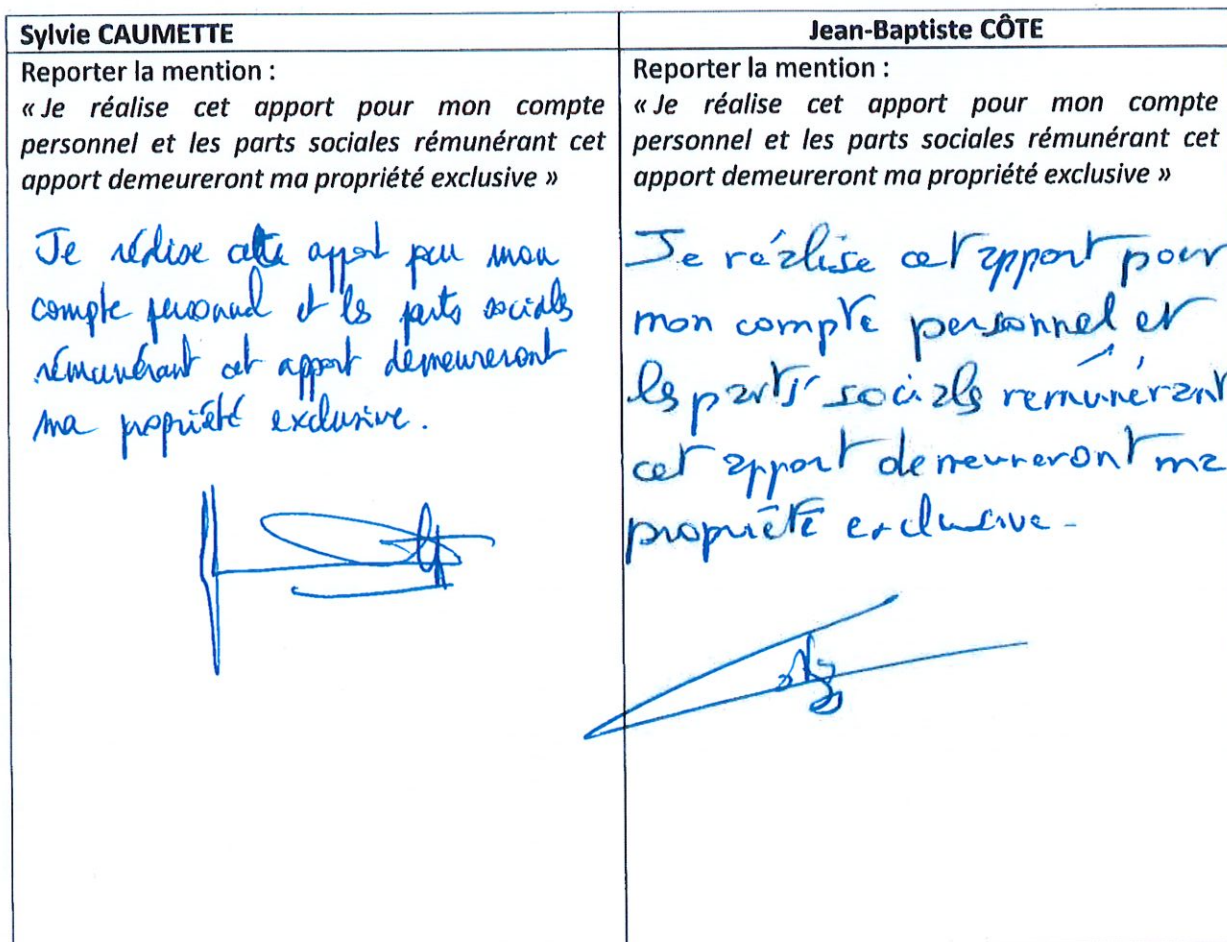 Sylvie CAUMETTE
Reporter la mention :
« Je réalise cet apport pour mon compte
personnel et les parts sociales rémunérant cet
apport demeureront ma propriété exclusive »
Je réalise cette apport pour mon
compte personnel et les parts sociales
rémunérant cet apport demeureront
ma propriété exclusive.
Jean-Baptiste CÔTE
Reporter la mention :
« Je réalise cet apport pour mon compte
personnel et les parts sociales rémunérant cet
apport demeureront ma propriété exclusive »
Je réalise cet apport pour
mon compte personnel et
les parts sociales remunérant
cet apport demeureront ma
propriété exclusive.